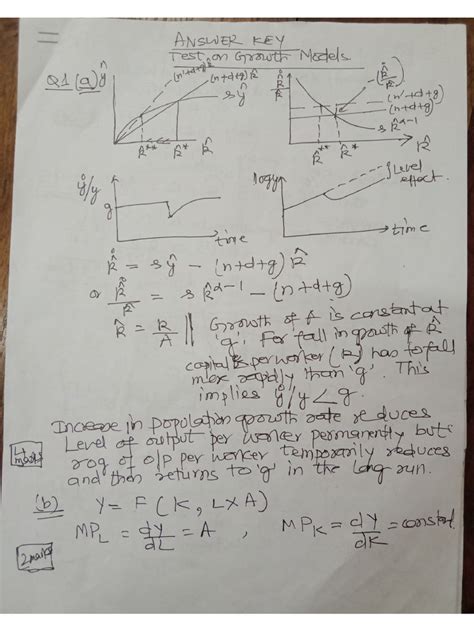 ANSWER KEY
Test on Growth Models.
Q1 (a) ŷ
(n'+d+g) k̂
(n+d+g) k̂
s ŷ
k̂** k̂* k̂
(n'+d+g)
(n+d+g)
s k̂^α-1
k̂** k̂* k̂
ẏ/y
g
time
log y
Level effect.
time
k̂̇ = s ŷ - (n+d+g) k̂
or k̂̇/k̂ = s k̂^α-1 - (n+d+g)
k̂ = k/A || Growth of A is constant at
'g'. For fall in growth of k̂
capital per worker (k) has to fall
more rapidly than 'g'. This
implies ẏ/y < g.
Increase in population growth rate reduces
Level of output per worker permanently but
4 marks
rog of o/p per worker temporarily reduces
and then returns to 'g' in the long run.
(b) Y = F (K, L X A)
MP_L = dY/dL = A , MP_K = dY/dK = constant.
2 marks